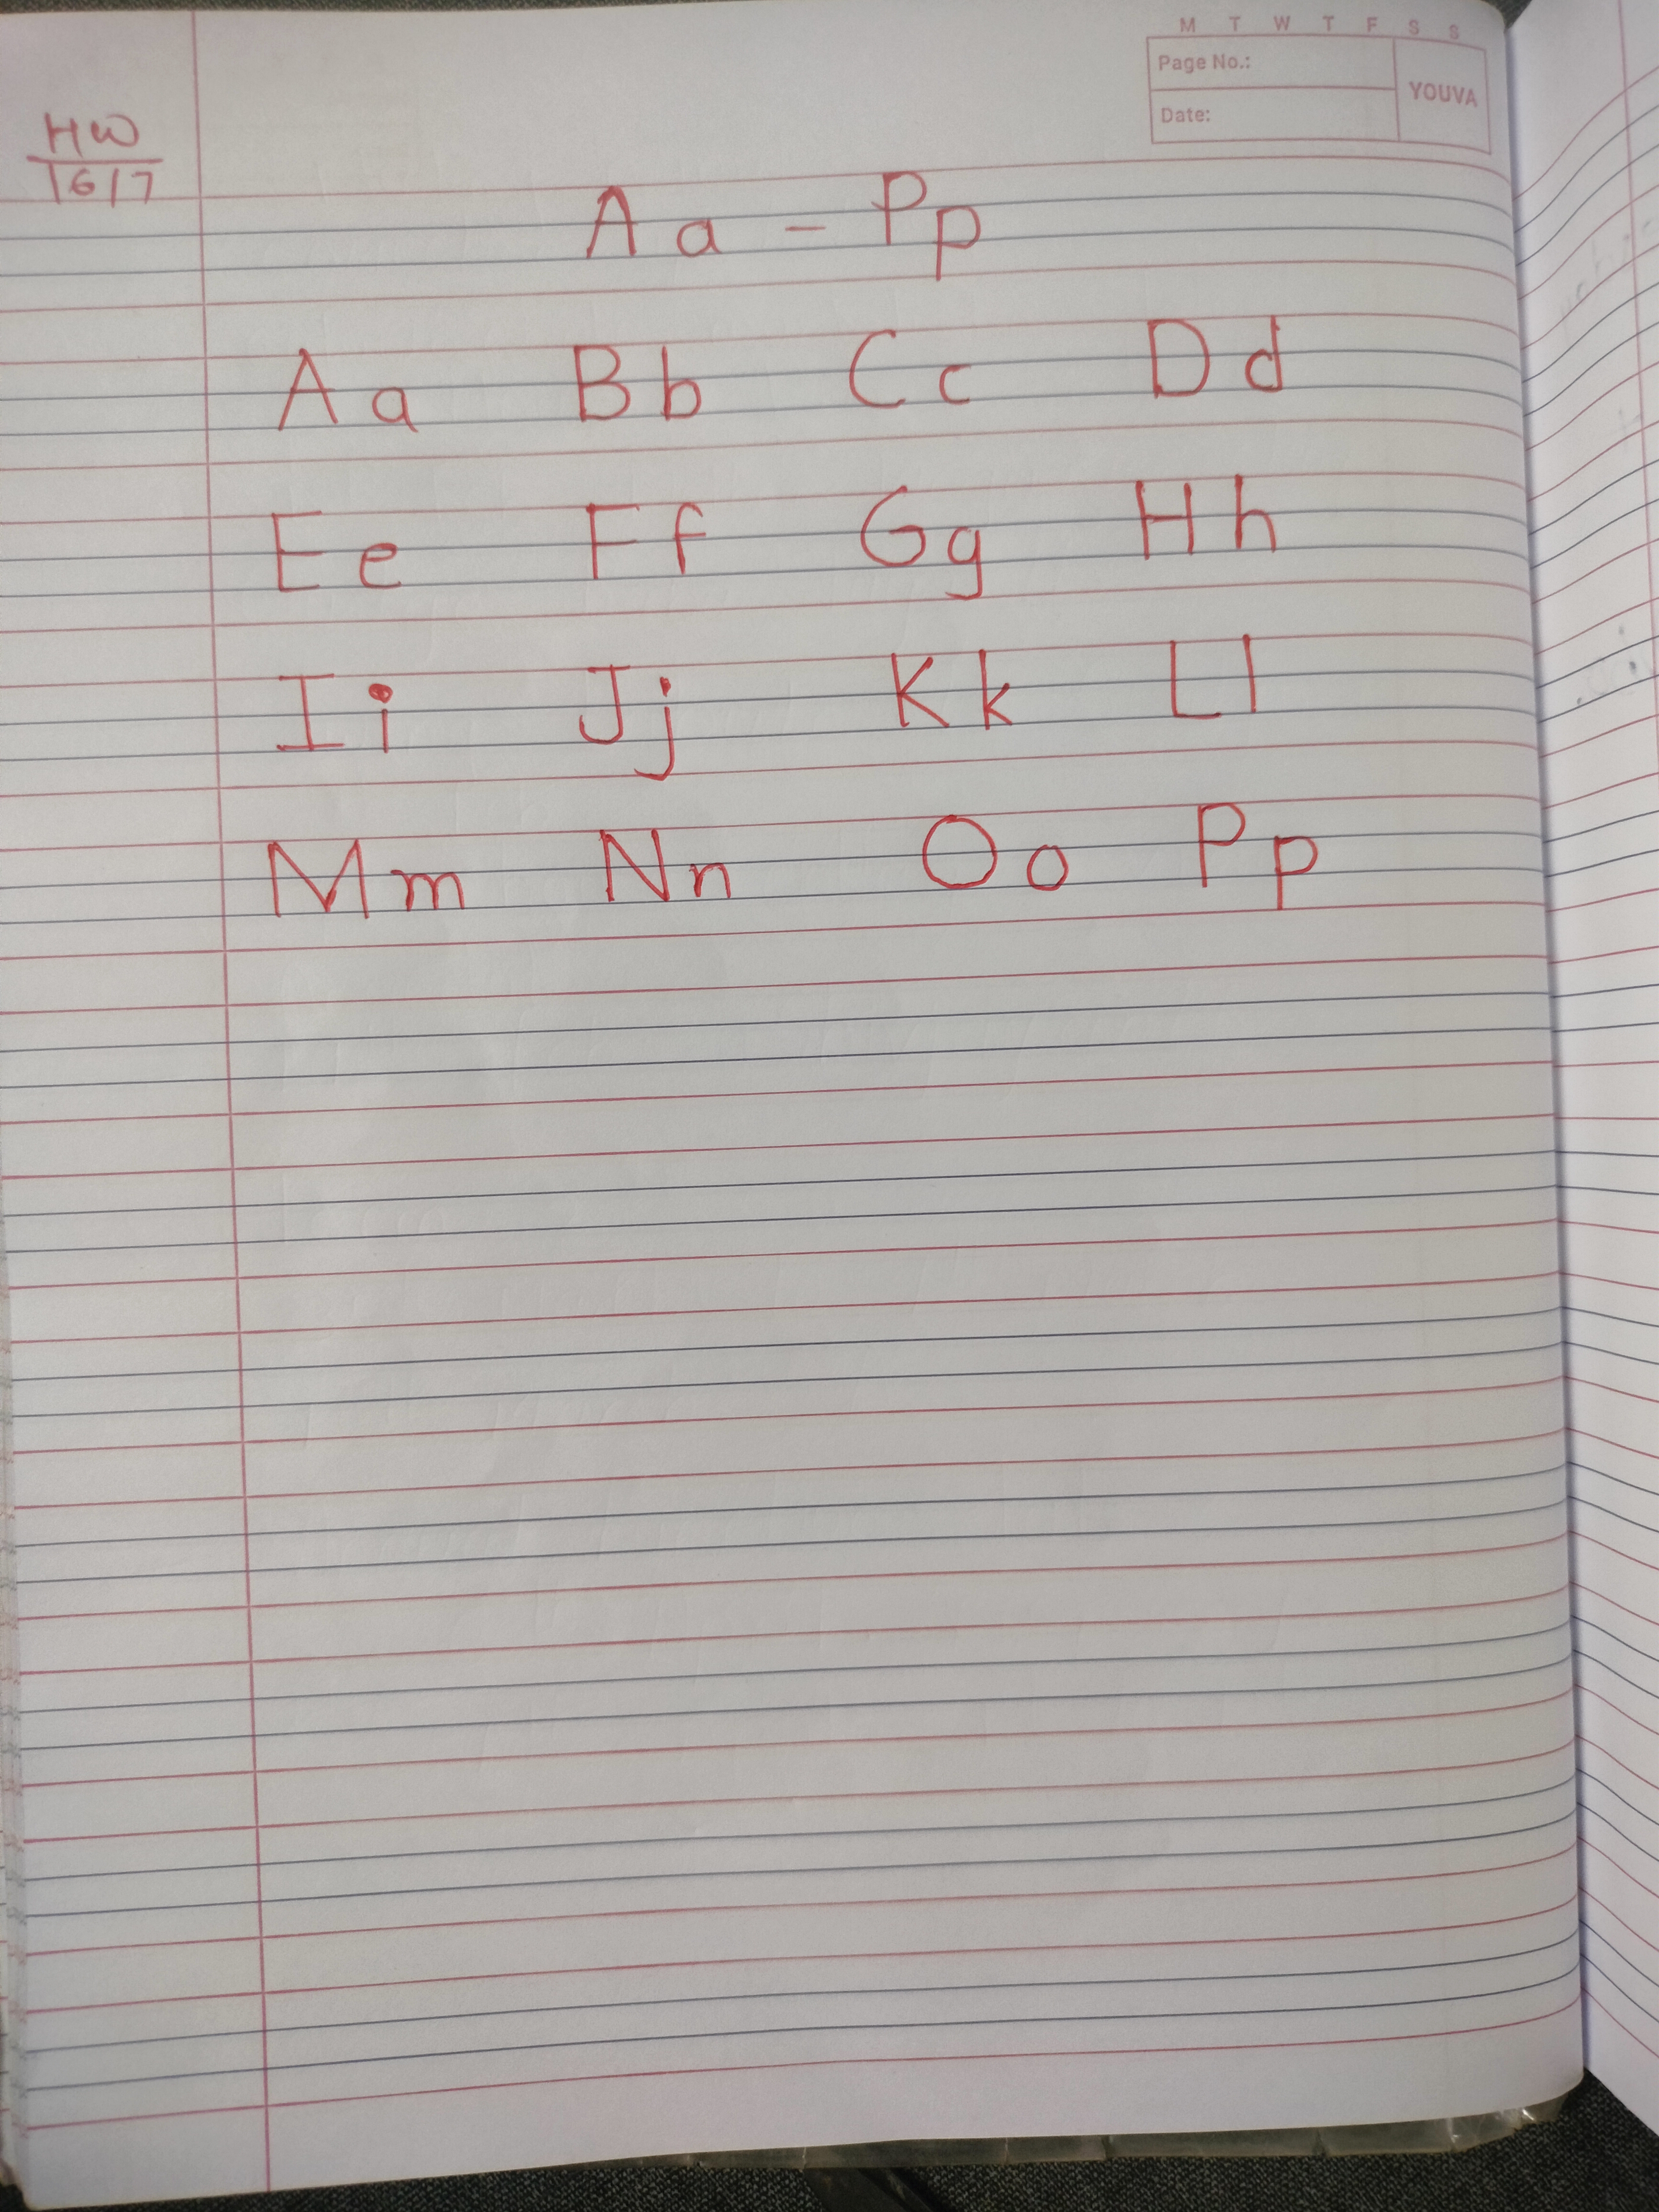 M T W T F S S
Page No.:
YOUVA
Date:
HW
16/7
Aa - Pp
Aa Bb Cc Dd
Ee Ff Gg Hh
Ii Jj Kk Ll
Mm Nn Oo Pp